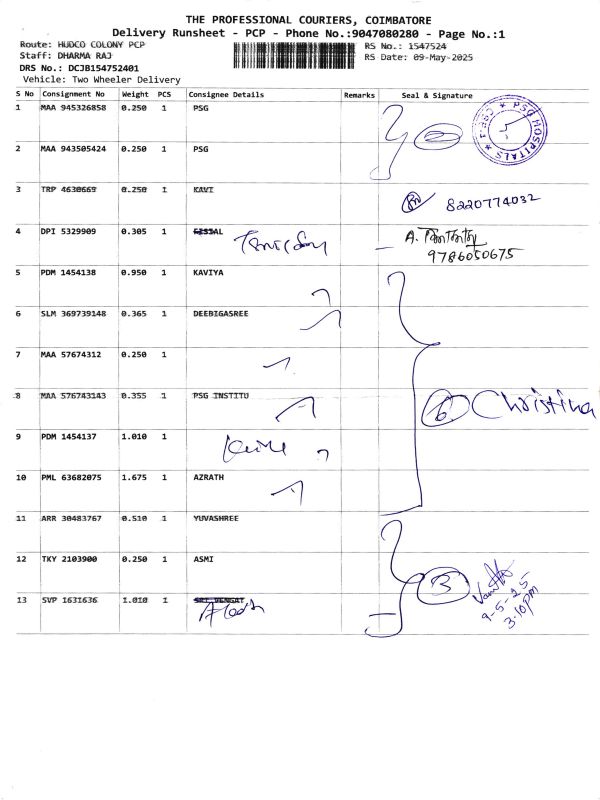 THE PROFESSIONAL COURIERS, COIMBATORE
Delivery Runsheet - PCP - Phone No.:9047080280 - Page No.:1
Route: HUDCO COLONY PCP
RS No.: 1547524
Staff: DHARMA RAJ
RS Date: 09-May-2025
DRS No.: DCJB154752401
Vehicle: Two Wheeler Delivery
S No Consignment No Weight PCS Consignee Details Remarks Seal & Signature
1 MAA 945326858 0.250 1 PSG
PSG HOSPITALS
2 MAA 943505424 0.250 1 PSG
3 TRP 4630669 0.250 1 KAVI
8220774032
4 DPI 5329909 0.305 1
A.
9786050675
5 PDM 1454138 0.950 1 KAVIYA
6 SLM 369739148 0.365 1 DEEBIGASREE
7 MAA 57674312 0.250 1
8 MAA 576743143 0.355 1 PSG INSTITU
6 Christina
9 PDM 1454137 1.010 1
10 PML 63682075 1.675 1 AZRATH
11 ARR 30483767 0.510 1 YUVASHREE
12 TKY 2103900 0.250 1 ASMI
3
9-5-25
3.10pm
13 SVP 1631636 1.010 1 SRI VENGAT